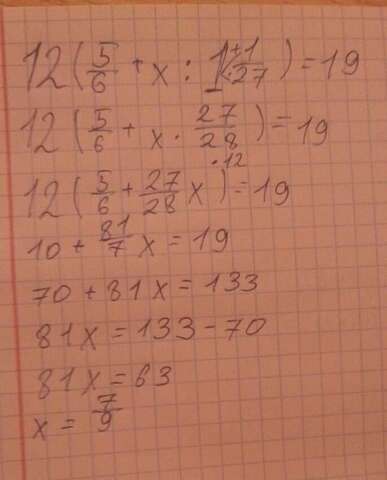 12(5/6 + x : 1 +1/·27) = 19
12(5/6 + x · 27/28) = 19
12(5/6 + 27/28 x)·12 = 19
10 + 81/7 x = 19
70 + 81x = 133
81x = 133 - 70
81x = 63
x = 7/9